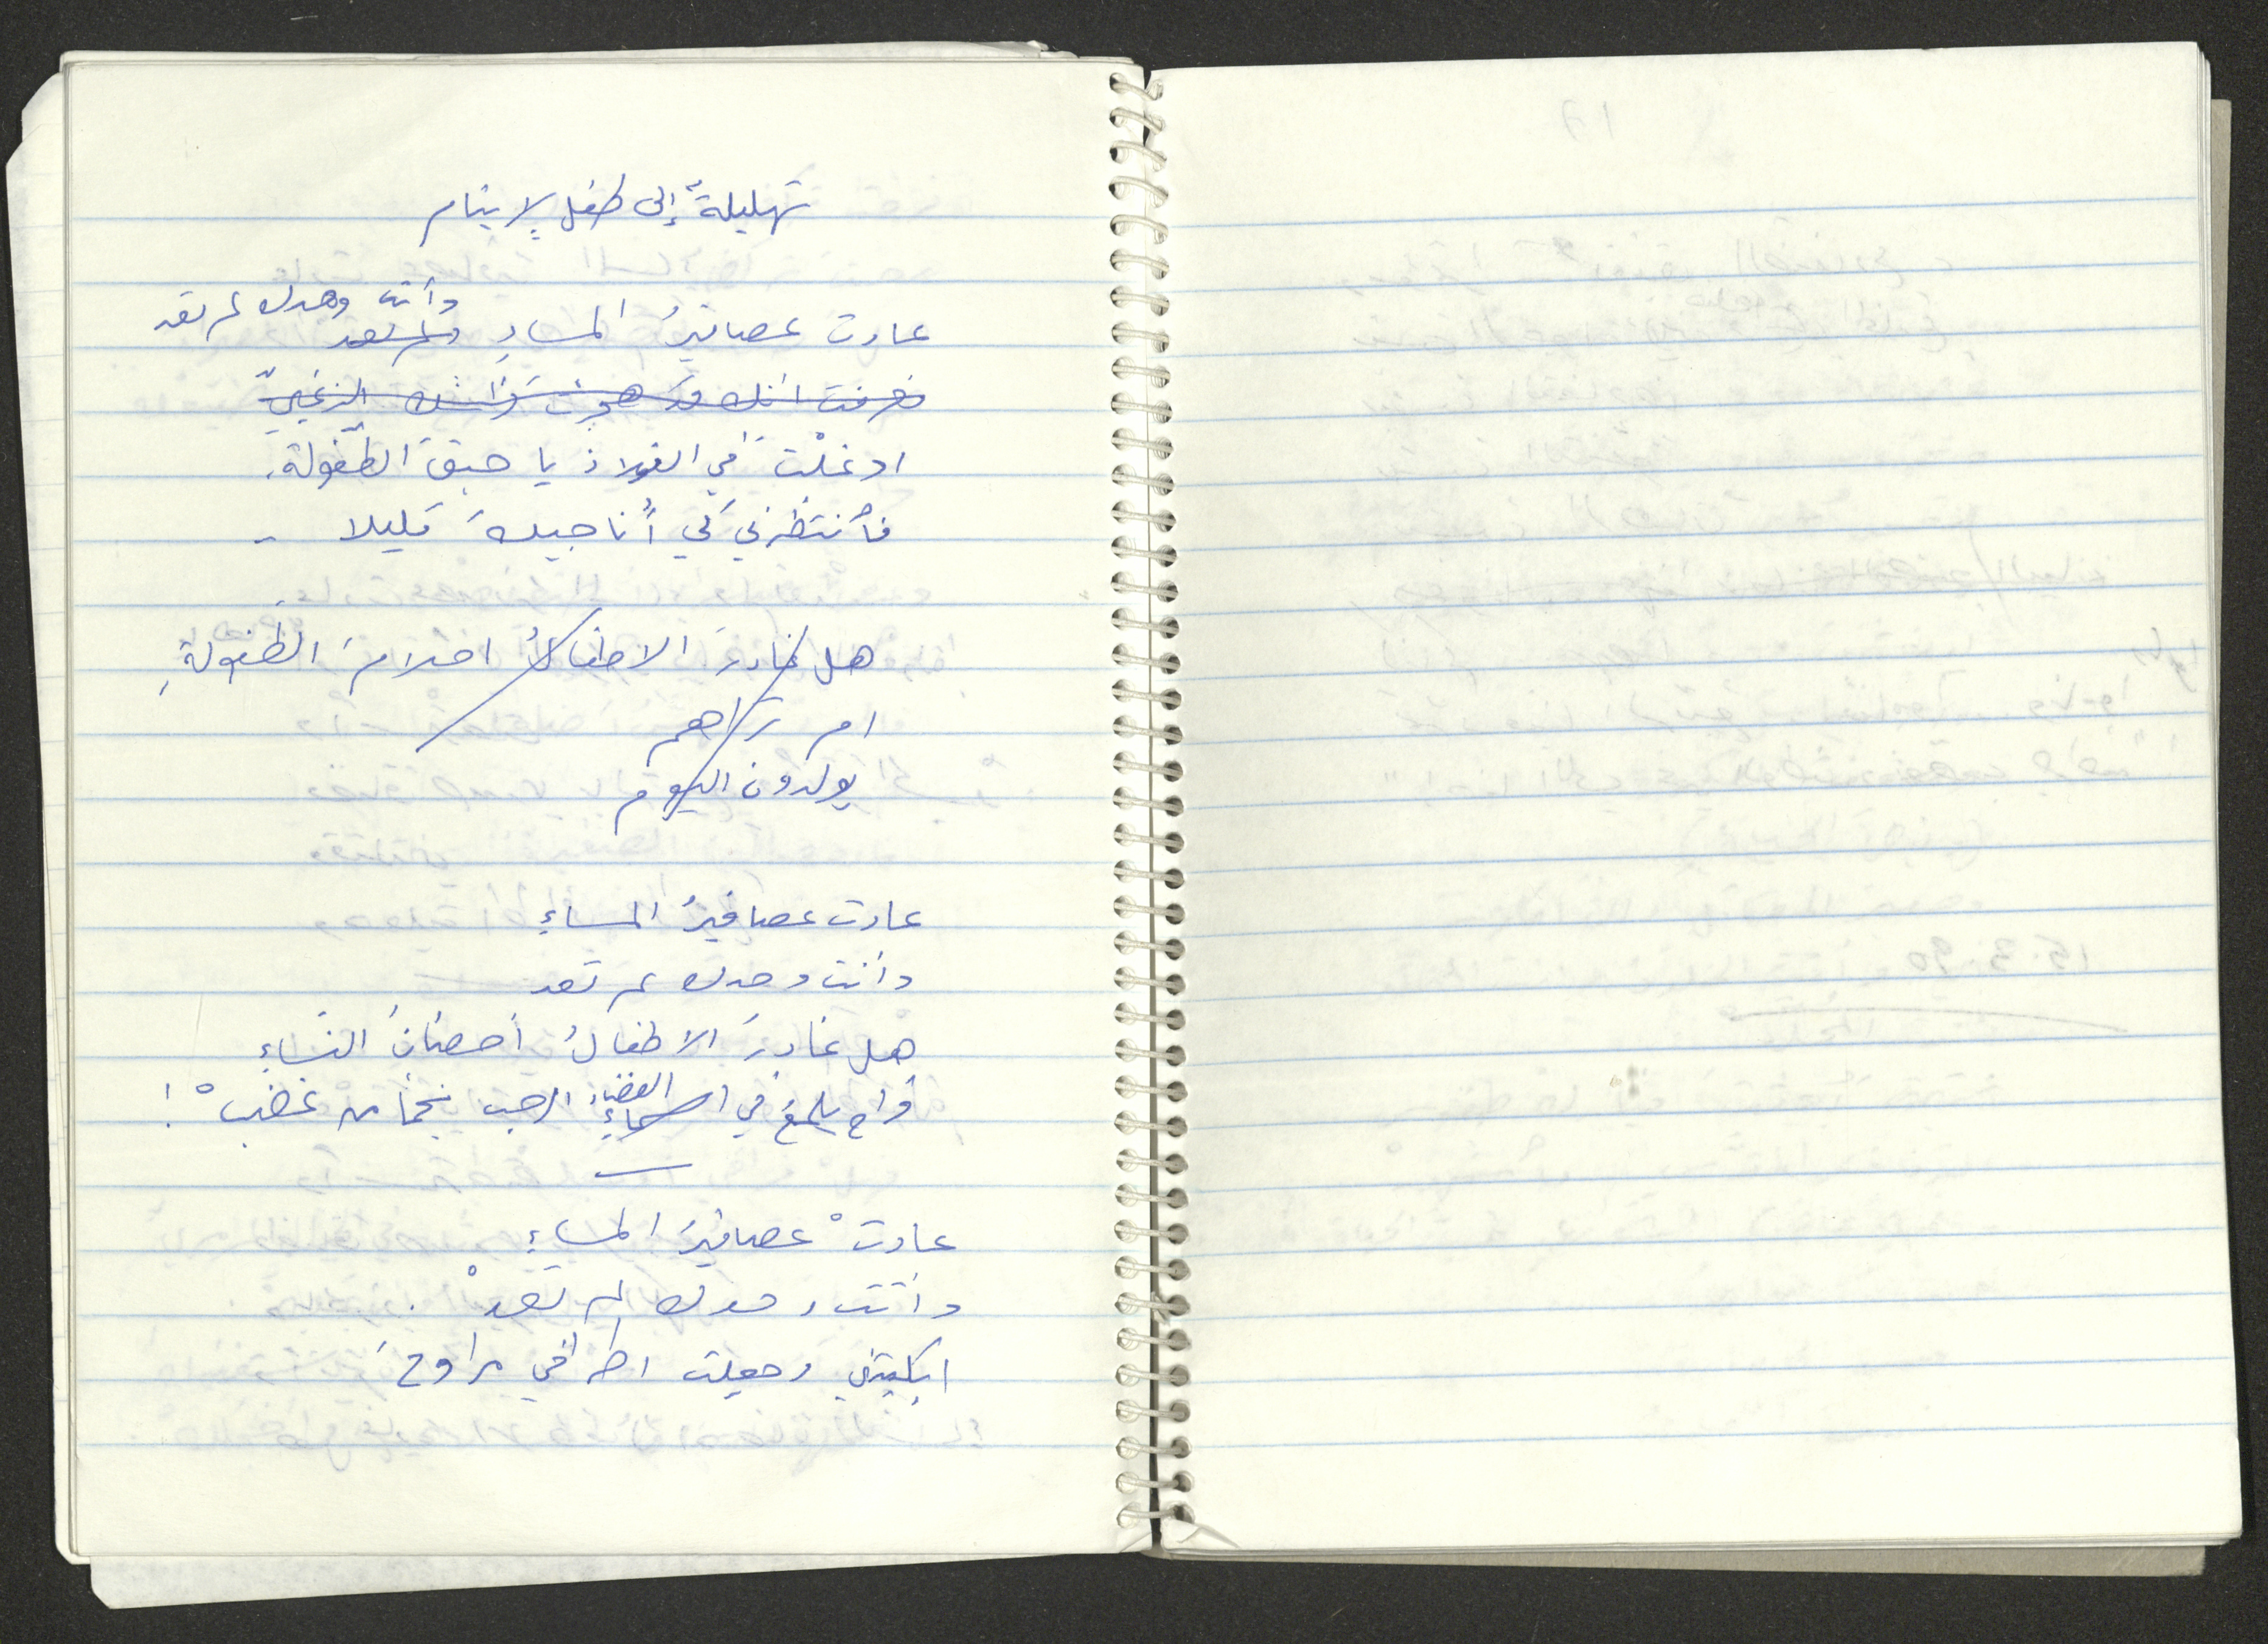 تهليلةٌ إلى طفلٍ لا ينام
وأنت وحدك لم تعد
عادت عصافيرُ المساءِ ولم تعد
فعرفت انك قد هجرت فراشك الزغبيّ
اوغلْتَ في الفولاذ يا حبقَ الطّفولة.
فأنتظرني كي أُناجيكَ قليلا -
هل غادرَ الاطفالُ احلامَ الطّفولةِ
ام تراهم
يولدون اليوم
عادت عصافيرُ المساءِ
وأنت وحدك لم تعد
هل غادرَ الاطفالُ أحضانَ النّساءِ
الفضاء
فراح يلمعُ في السماءِ الرحب نجماً من غضبْ !
عادتْ عصافيرُ المساءِ
وأنت وحدك لم تعدْ .
ابكيتني وجعلت اطرافي مراوحَ